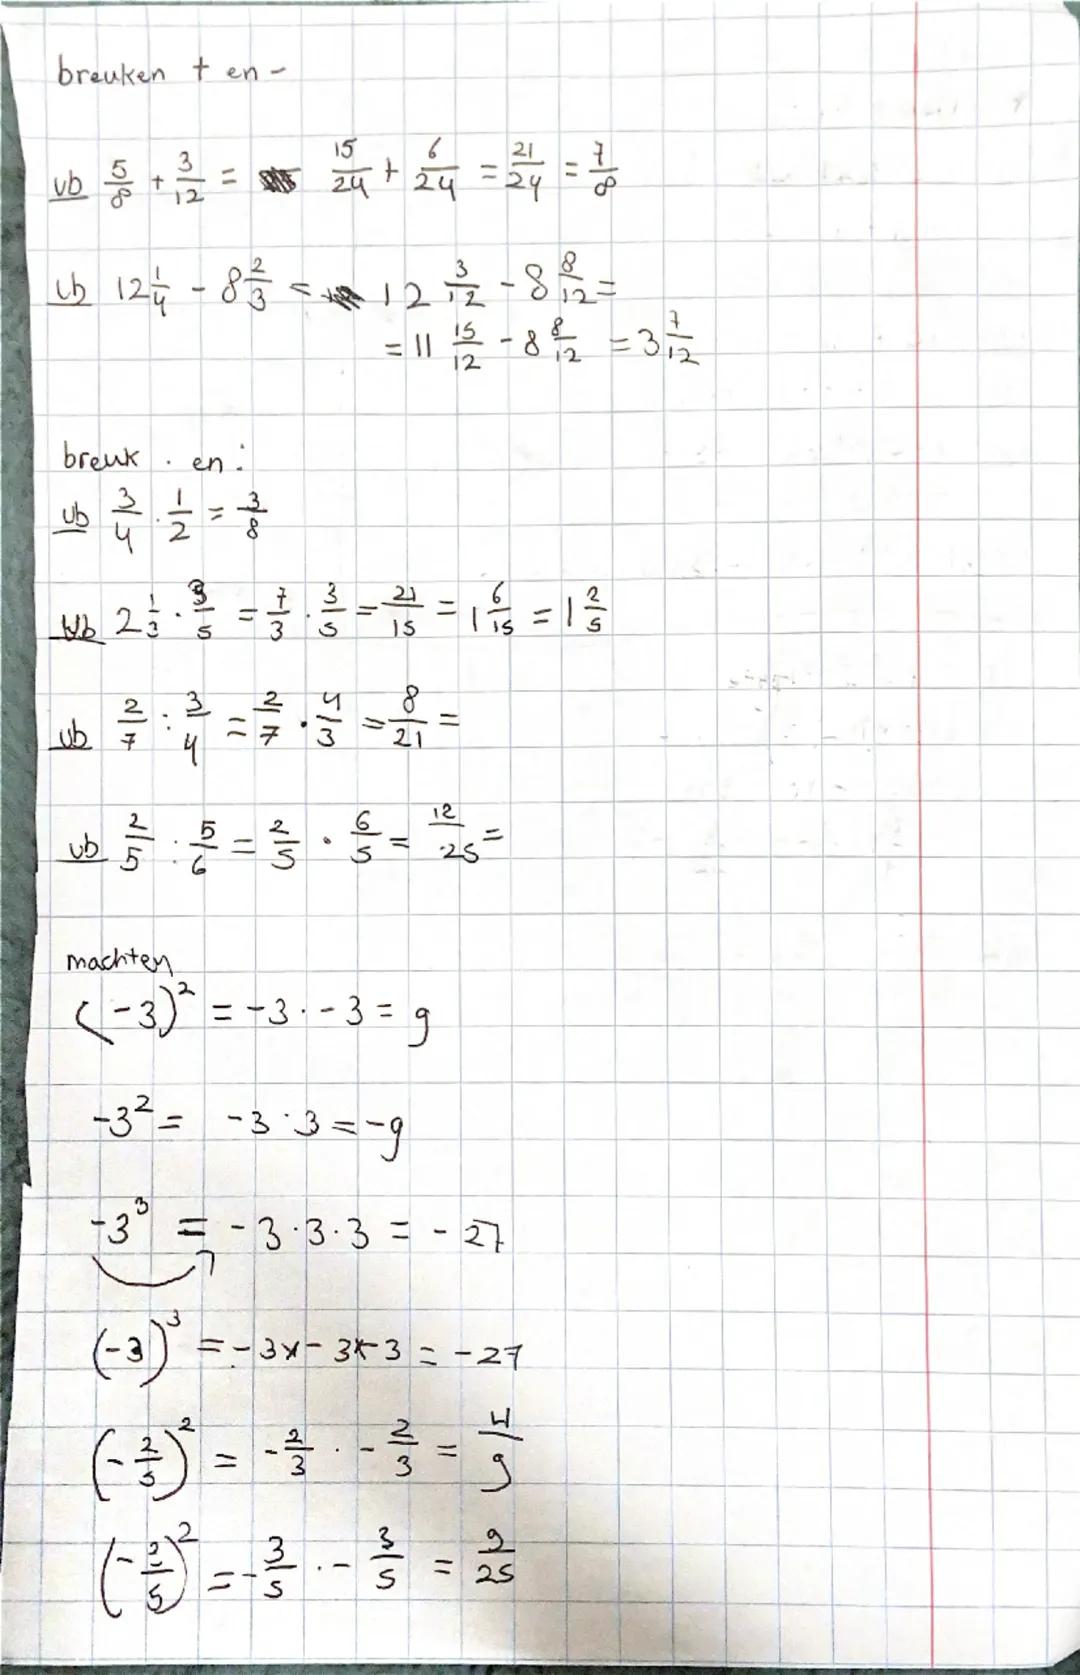 breuken + en -
vb 5/8 + 3/12 = 15/24 + 6/24 = 21/24 = 7/8
vb 12 1/4 - 8 2/3 = 12 3/12 - 8 8/12 =
= 11 15/12 - 8 8/12 = 3 7/12
breuk . en :
vb 3/4 . 1/2 = 3/8
vb 2 1/3 . 3/5 = 7/3 . 3/5 = 21/15 = 1 6/15 = 1 2/5
vb 2/7 : 3/4 = 2/7 . 4/3 = 8/21 =
vb 2/5 : 5/6 = 2/5 . 6/5 = 12/25 =
machten
(-3)² = -3 . -3 = 9
-3² = -3 . 3 = -9
-3³ = -3 . 3 . 3 = -27
(-3)³ = -3 x -3 x -3 = -27
(-2/5)² = -2/3 . -2/3 = 4/9
(-3/5)² = -3/5 . -3/5 = 9/25